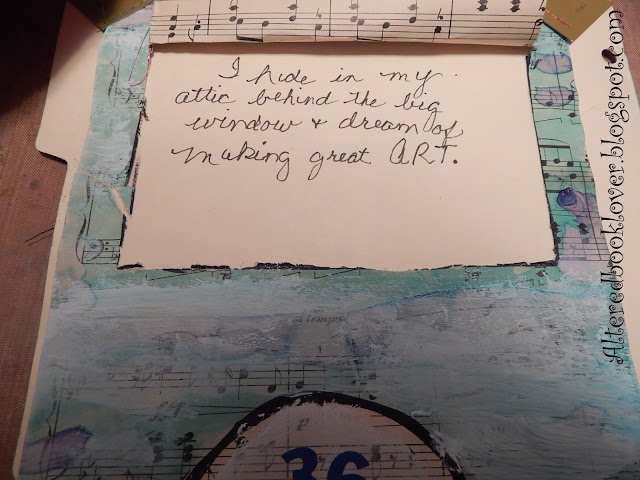 I hide in my
attic behind the big
window & dream of
making great ART.
a tempo
36
Alteredbooklover.blogspot.com